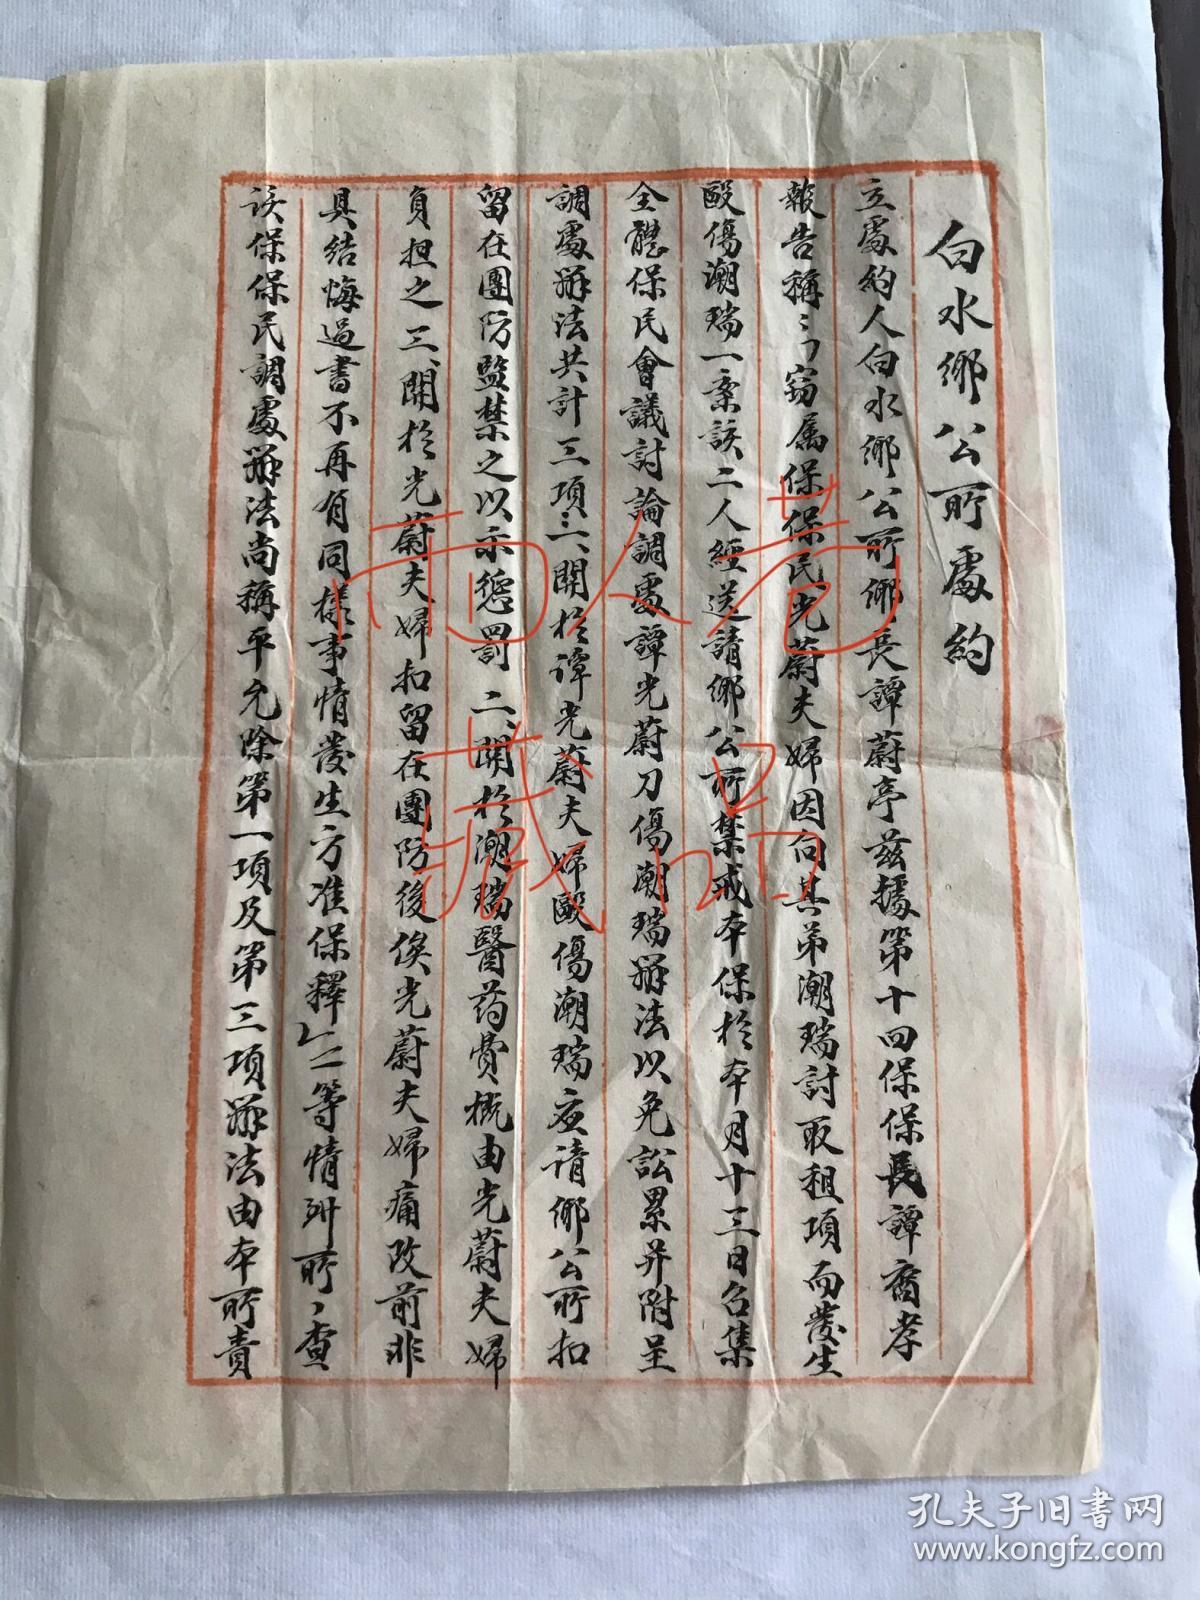 白水鄉公所處約
立處約人白水鄉公所鄉長譚蔚亭茲據第十四保保長譚裔孝
報告稱：「竊屬保保民光蔚夫婦因向其弟潮瑞討取租項而發生
毆傷潮瑞一案該二人經送請鄉公所禁戒本保於本月十三日召集
全體保民會議討論調處譚光蔚刀傷潮瑞辦法以免訟累并附呈
調處辦法共計三項：一、關於譚光蔚夫婦毆傷潮瑞应請鄉公所扣
留在團防監禁之以示懲罰 二、關於潮瑞醫药費概由光蔚夫婦
負担之 三、關於光蔚夫婦扣留在團防後俟光蔚夫婦痛改前非
具结悔過書不再有同樣事情發生方准保釋」二等情到所、查
该保保民調處辦法尚稱平允除第一項及第三項辦法由本所責
雨人老
藏品
孔夫子旧书网
www.kongfz.com